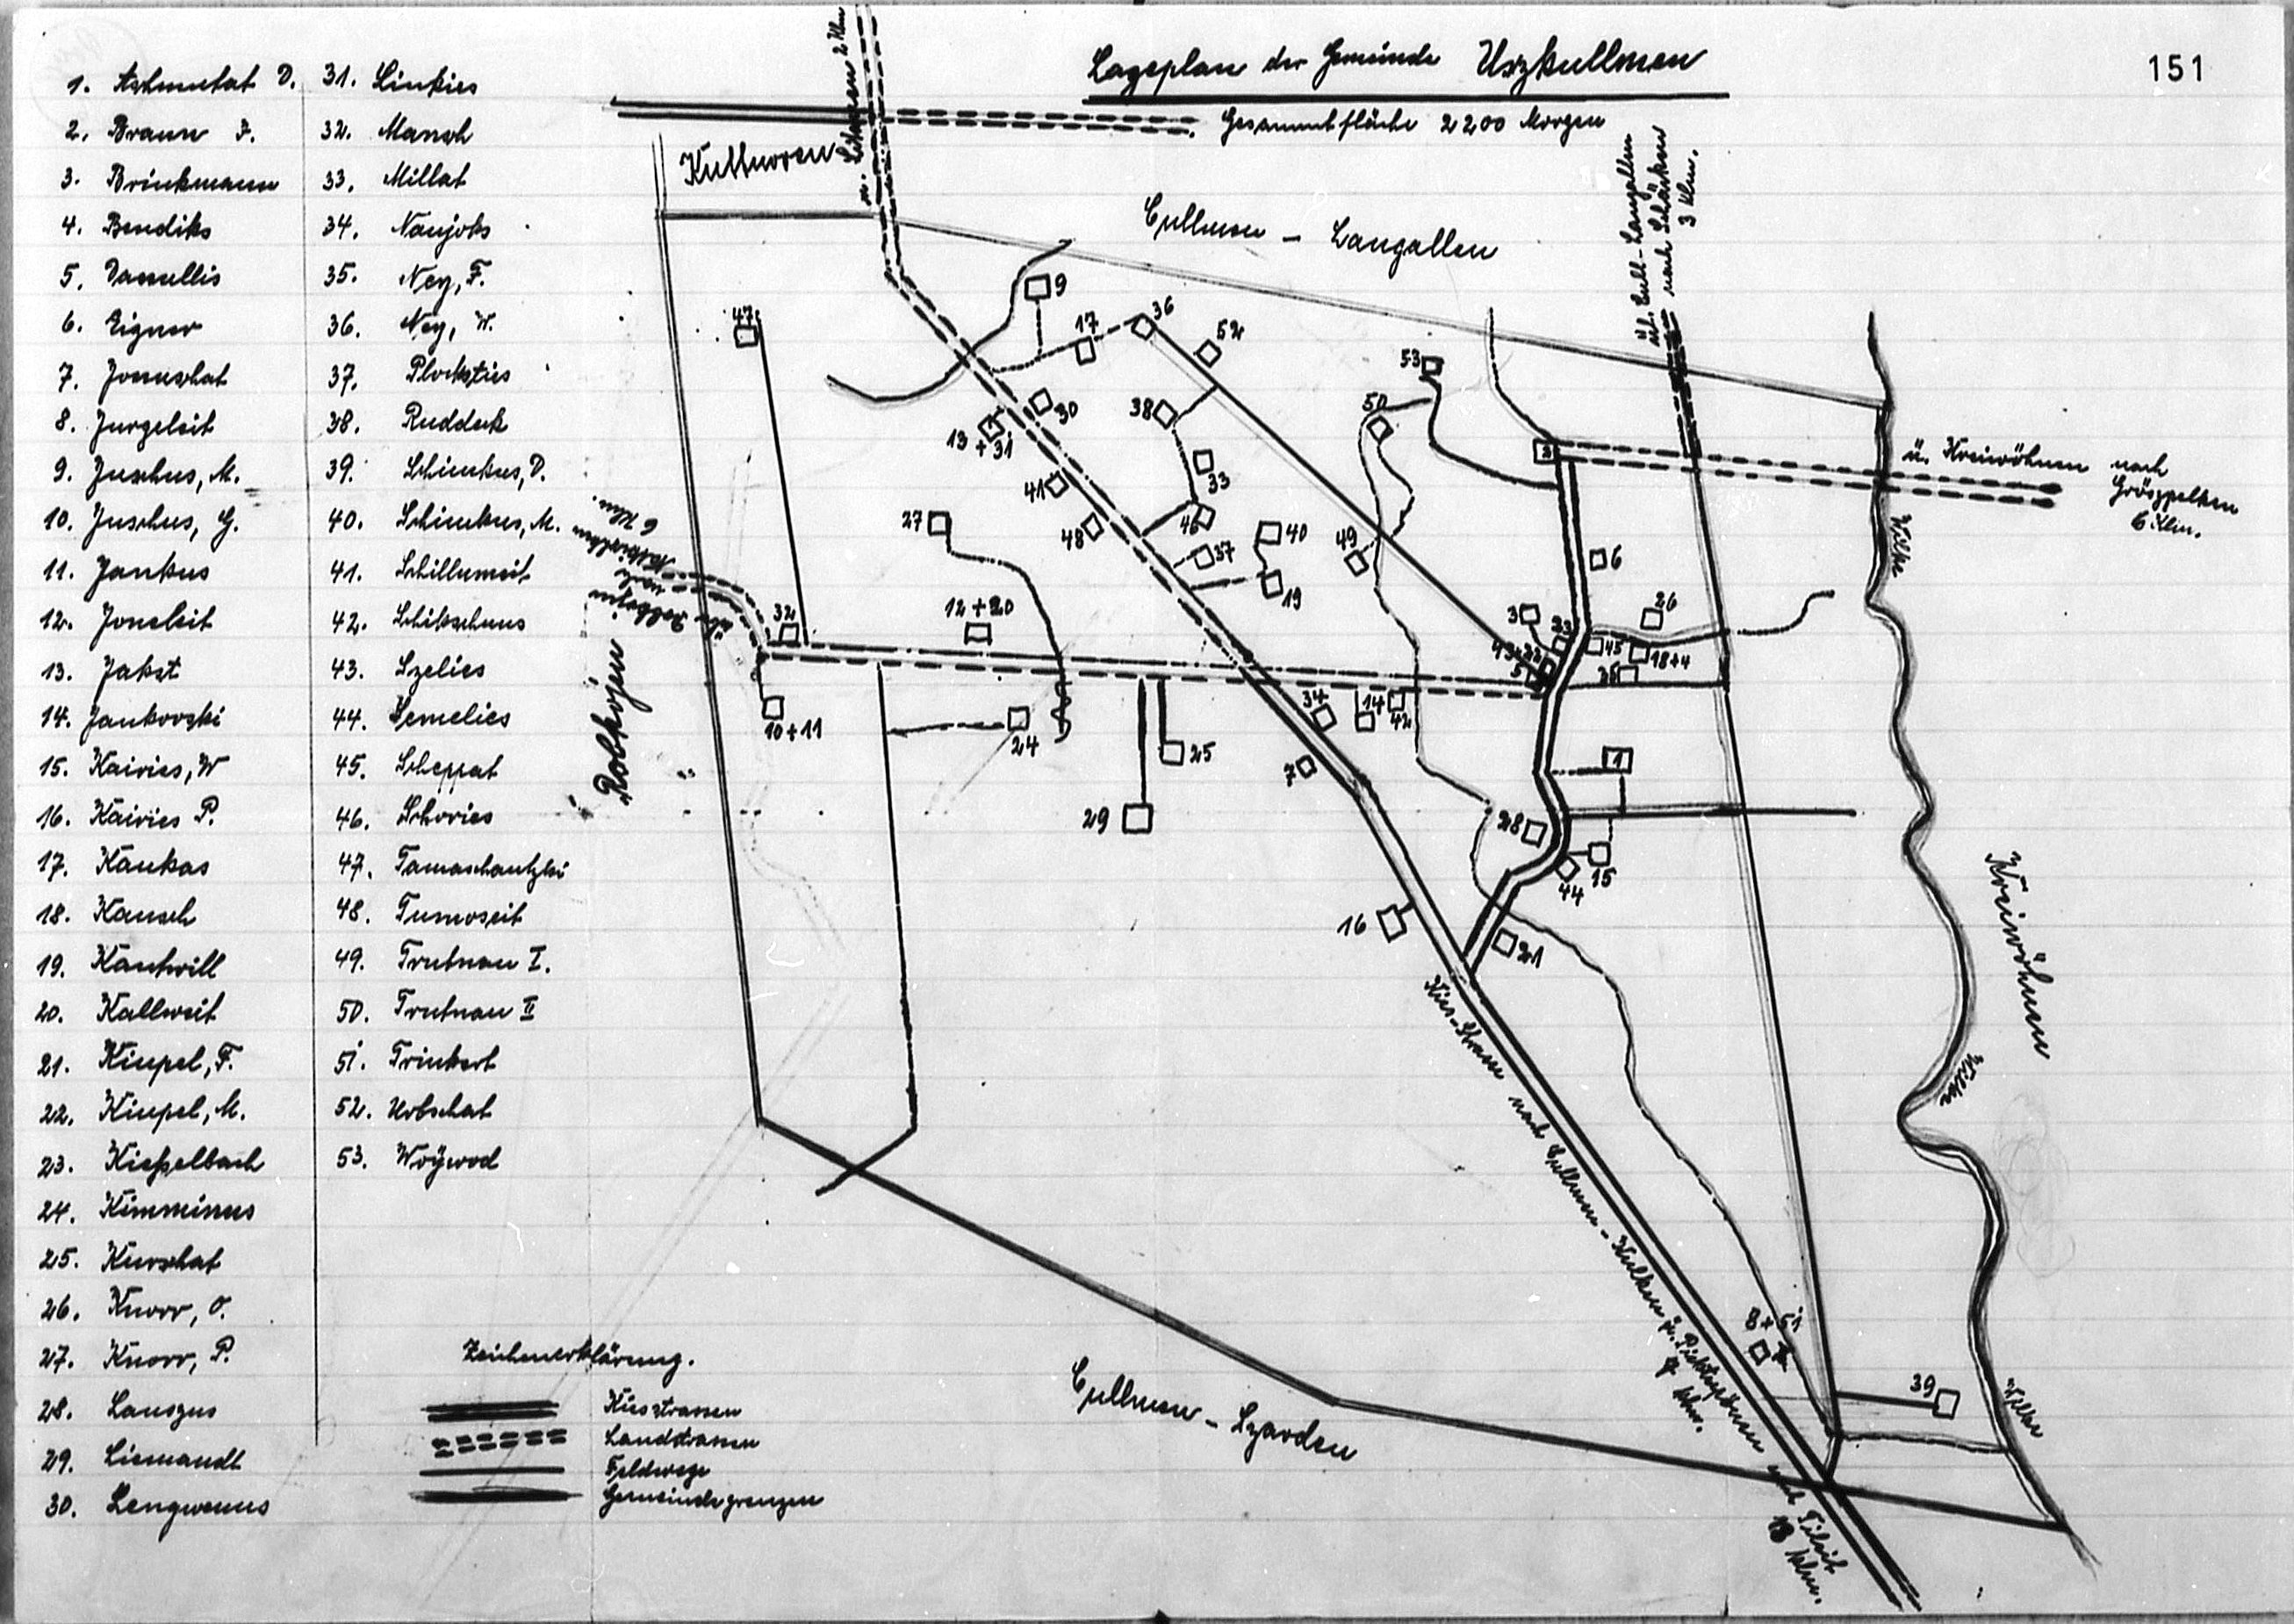 Lageplan der Gemeinde Uszkullmen
151
Gesammtfläche 2200 Morgen
1. Aschmutat D.
2. Braun F.
3. Brinkmann
4. Bendiks
5. Dannullis
6. Eigner
7. Jonuschat
8. Jurgeleit
9. Juschus, M.
10. Juschus, G.
11. Jankus
12. Joneleit
13. Jakst
14. Jankowski
15. Kairies, W
16. Kairies P.
17. Kaukas
18. Kausch
19. Kantwill
20. Kallweit
21. Kiupel, F.
22. Kiupel, M.
23. Kießelbach
24. Kimminus
25. Kurschat
26. Knorr, O.
27. Knorr, P.
28. Lauszus
29. Liemandt
30. Lengwenus
31. Linkies
32. Mansch
33. Millat
34. Naujoks
35. Ney, F.
36. Ney, W.
37. Plocksties
38. Ruddeck
39. Schimkus, D.
40. Schimkus, M.
41. Schillumeit
42. Schikschnus
43. Szelies
44. Semelies
45. Scheppat
46. Schories
47. Tamaschautzki
48. Tumoseit
49. Trutnau I.
50. Trutnau II
51. Trinkert
52. Urbschat
53. Woÿwod
Zeichenerklärung.
Kiesstrassen
Landstrassen
Feldwege
Gemeindegrenzen
Kuttuwren
2 Klm
Cullmen – Laugallen
ü. Cull-Laugallen
nach Schäcken
3 Klm.
ü. Kreiwöhnen nach
Gröszpelken
6 Klm.
6 Klm.
nach
über
Robkojen
Wilke
Kreiwöhnen
Wilke
Wilke
Cullmen – Szarden
Kies-Strasse nach Cullmen - Kulken ü. Picktupönen nach Tilsit
7 klm.
18 klm.
47
9
17
36
52
53
50
30
13 + 31
38
33
41
48
46
37
40
19
49
27
12 + 20
32
10 + 11
24
29
25
2
6
3
26
23
45
18+4
5
34
14
42
7
1
28
44
15
16
21
8 + 51
39